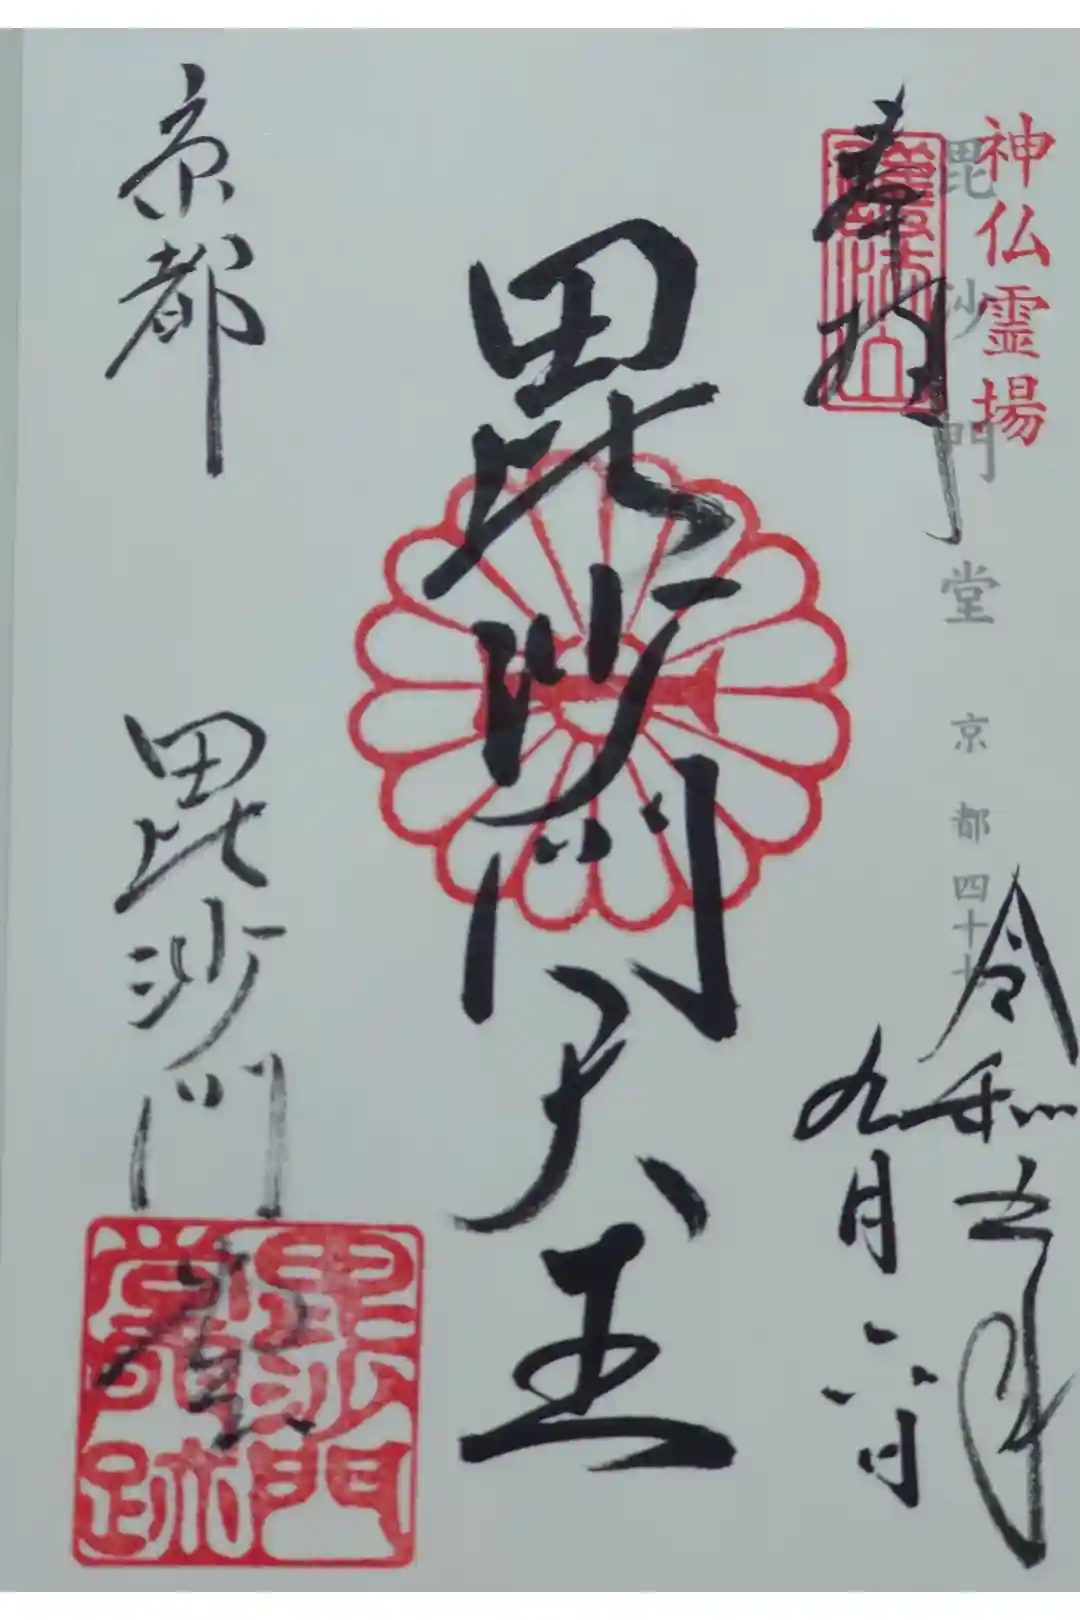 神仏霊場
毘沙門堂 京都四十七
奉拝
令和五年
九月六日
毘沙門天王
京都 毘沙門堂
毘沙門
堂跡